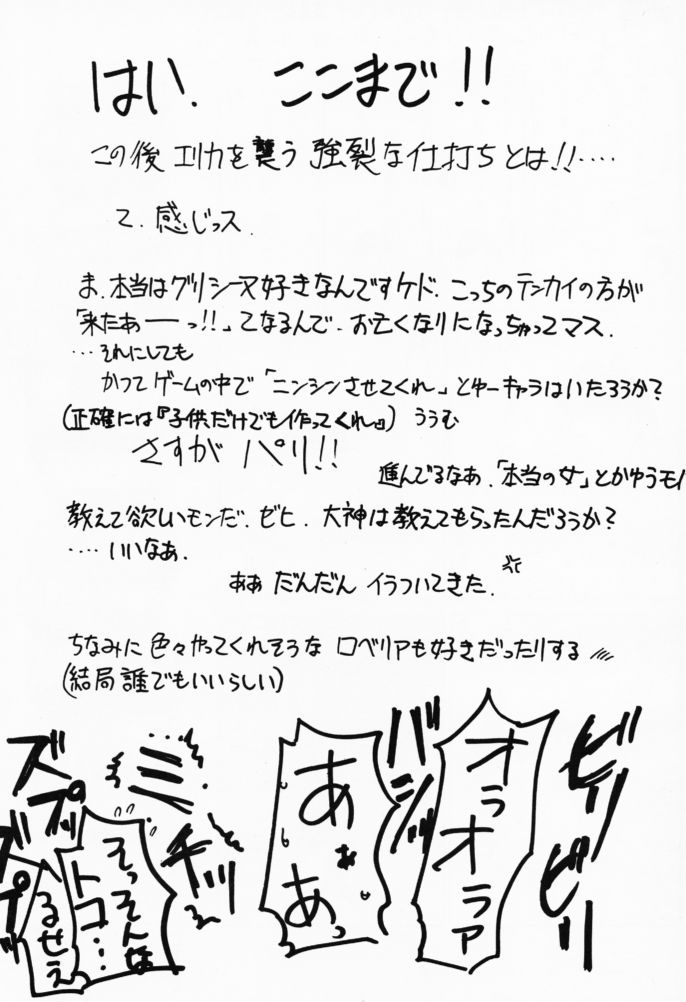 はい. ここまで!!
この後 エリカを襲う 強裂な仕打ちとは!!‥‥
て. 感じっス.
ま.本当はグリシーヌ好きなんですケド. こっちのテンカイの方が
「来たあーっ!!」てなるんで. お亡くなりになっちゃってマス.
…それにしても
かつてゲームの中で「ニンシンさせてくれ」とゆーキャラはいたろうか?
(正確には『子供だけでも作ってくれ』) ううむ
さすが パリ!!
進んでるなあ.「本当の女」とかゆうモノ
教えて欲しいモンだ. ゼヒ. 大神は教えてもらったんだろうか?
‥‥いいなあ.
ああ だんだん イラついてきた.
ちなみに 色々やってくれそうな ロベリアも好きだったりする
(結局誰でもいいらしい)
ビリ
ビリ
オラオラァ
バシッ
あぁあっ
ミチッ
ズプッ
ズプッ
そっそんな
トコ…
るせえ